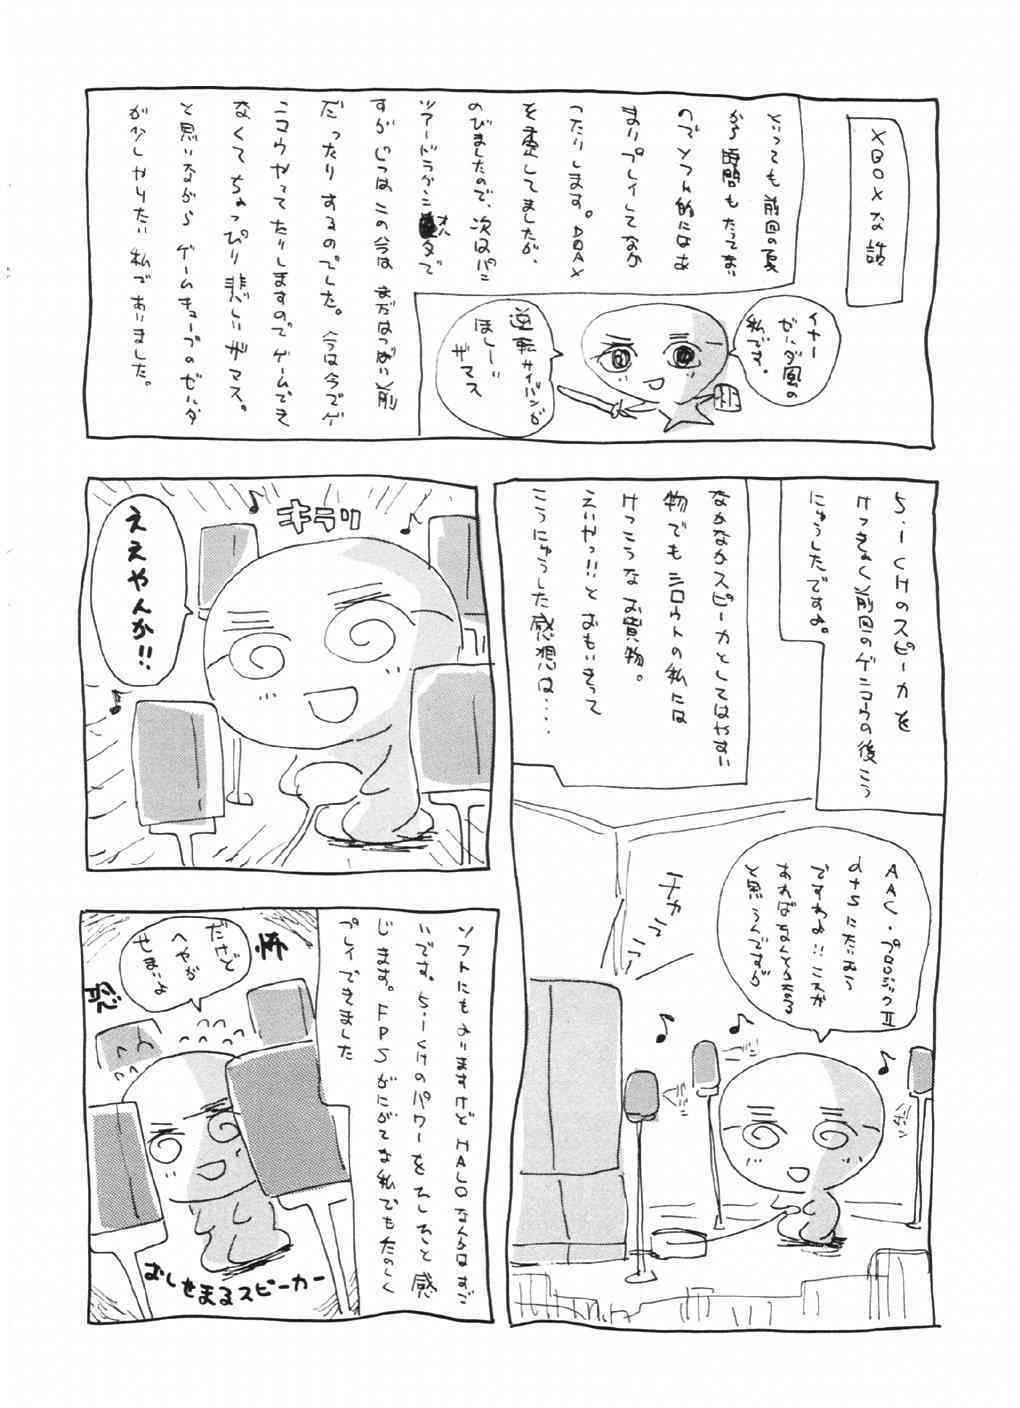 XBOXな話
といっても前回の夏
から時間もたってない
のでソフト的にはあ
まりプレイしてなか
ったりします。DOAX
を楽しんでましたが、
のびましたので、次はパン
ツァードラグーン
オルタで
すが じつはこの本は まだはつばい前
だったり するのでした。今は今でゲ
ンコウやってたりしますのでゲームでき
なくてちょっぴり悲しいザマス。
と思いながら ゲームキューブのゼルダ
が少しやりたい 私で ありました。
イヤー
ゼルダ風の
私です。
逆転サイバンが
ほしーい
ザマス
5.1CHのスピーカを
けっきょく前回のゲンコウの後こう
にゅうしたですよ。
なかなかスピーカとしてはやすい
物でも シロウトの私には
けっこうな お買物。
えいやっ!!と おもいきって
こうにゅうした感想は....
AAC・プロロジックII
dtsにたいおう
ですわよ!! これが
あればなんとかなる
と思うんですが
チカッ
キラリ
ええやんか!!
ソフトにもよりますけど HALOなんかはすご
いです。5.1CHのパワーを ひしひしと 感
じます。FPSがにがてな私でもたのしく
プレイできました
だけど
へやが
せまいよ
おしせまるスピーカー